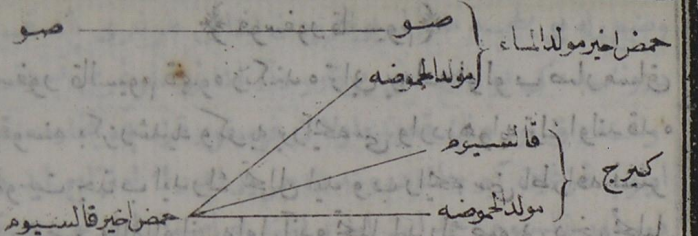 حمض اخير مولد الماء صو صو
مولد الحموضه
كيرج قالسيوم
مولد الحموضه حمض اخير قالسيوم